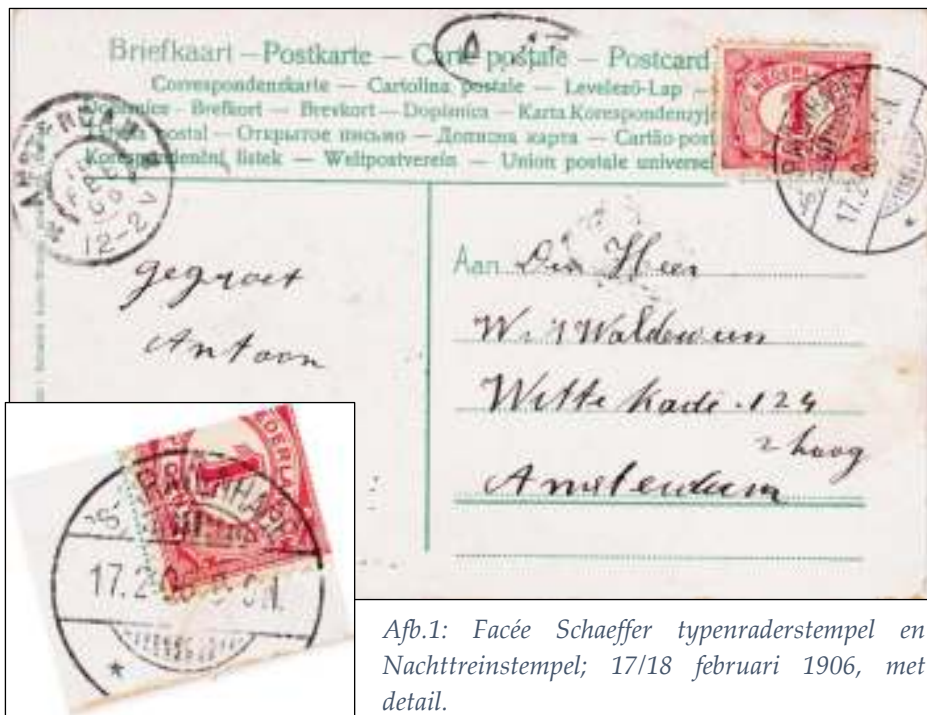 Briefkaart — Postkarte — Carte postale — Postcard
Correspondenzkarte — Cartolina postale — Levelező-Lap —
Dopisnice — Brefkort — Brevkort — Dopisnica — Karta Korespondenzyj
postal — Открытое письмо — Дописна карта — Cartão post
Korespondenční listek — Weltpostverein — Union postale universel
NEDERL
1
'S GRAVENHAGE
17.2
12-2V
gegroet
Antoon
Aan Den Heer
Witte Kade . 124
2 hoog
Amsterdam
NEDERLA
1
'S GRAVENHAGE
17.2
Afb.1: Facée Schaeffer typenraderstempel en
Nachttreinstempel; 17/18 februari 1906, met
detail.